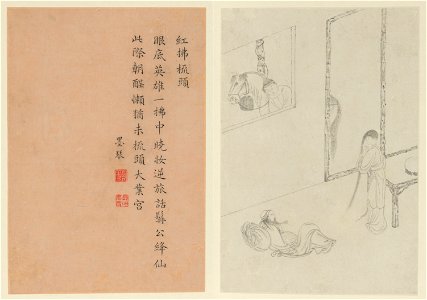 紅拂梳頭
眼底英雄一拂中曉妝逆旅話髯公絳仙
此際朝酲懶猶未梳頭大業宮
墨琴